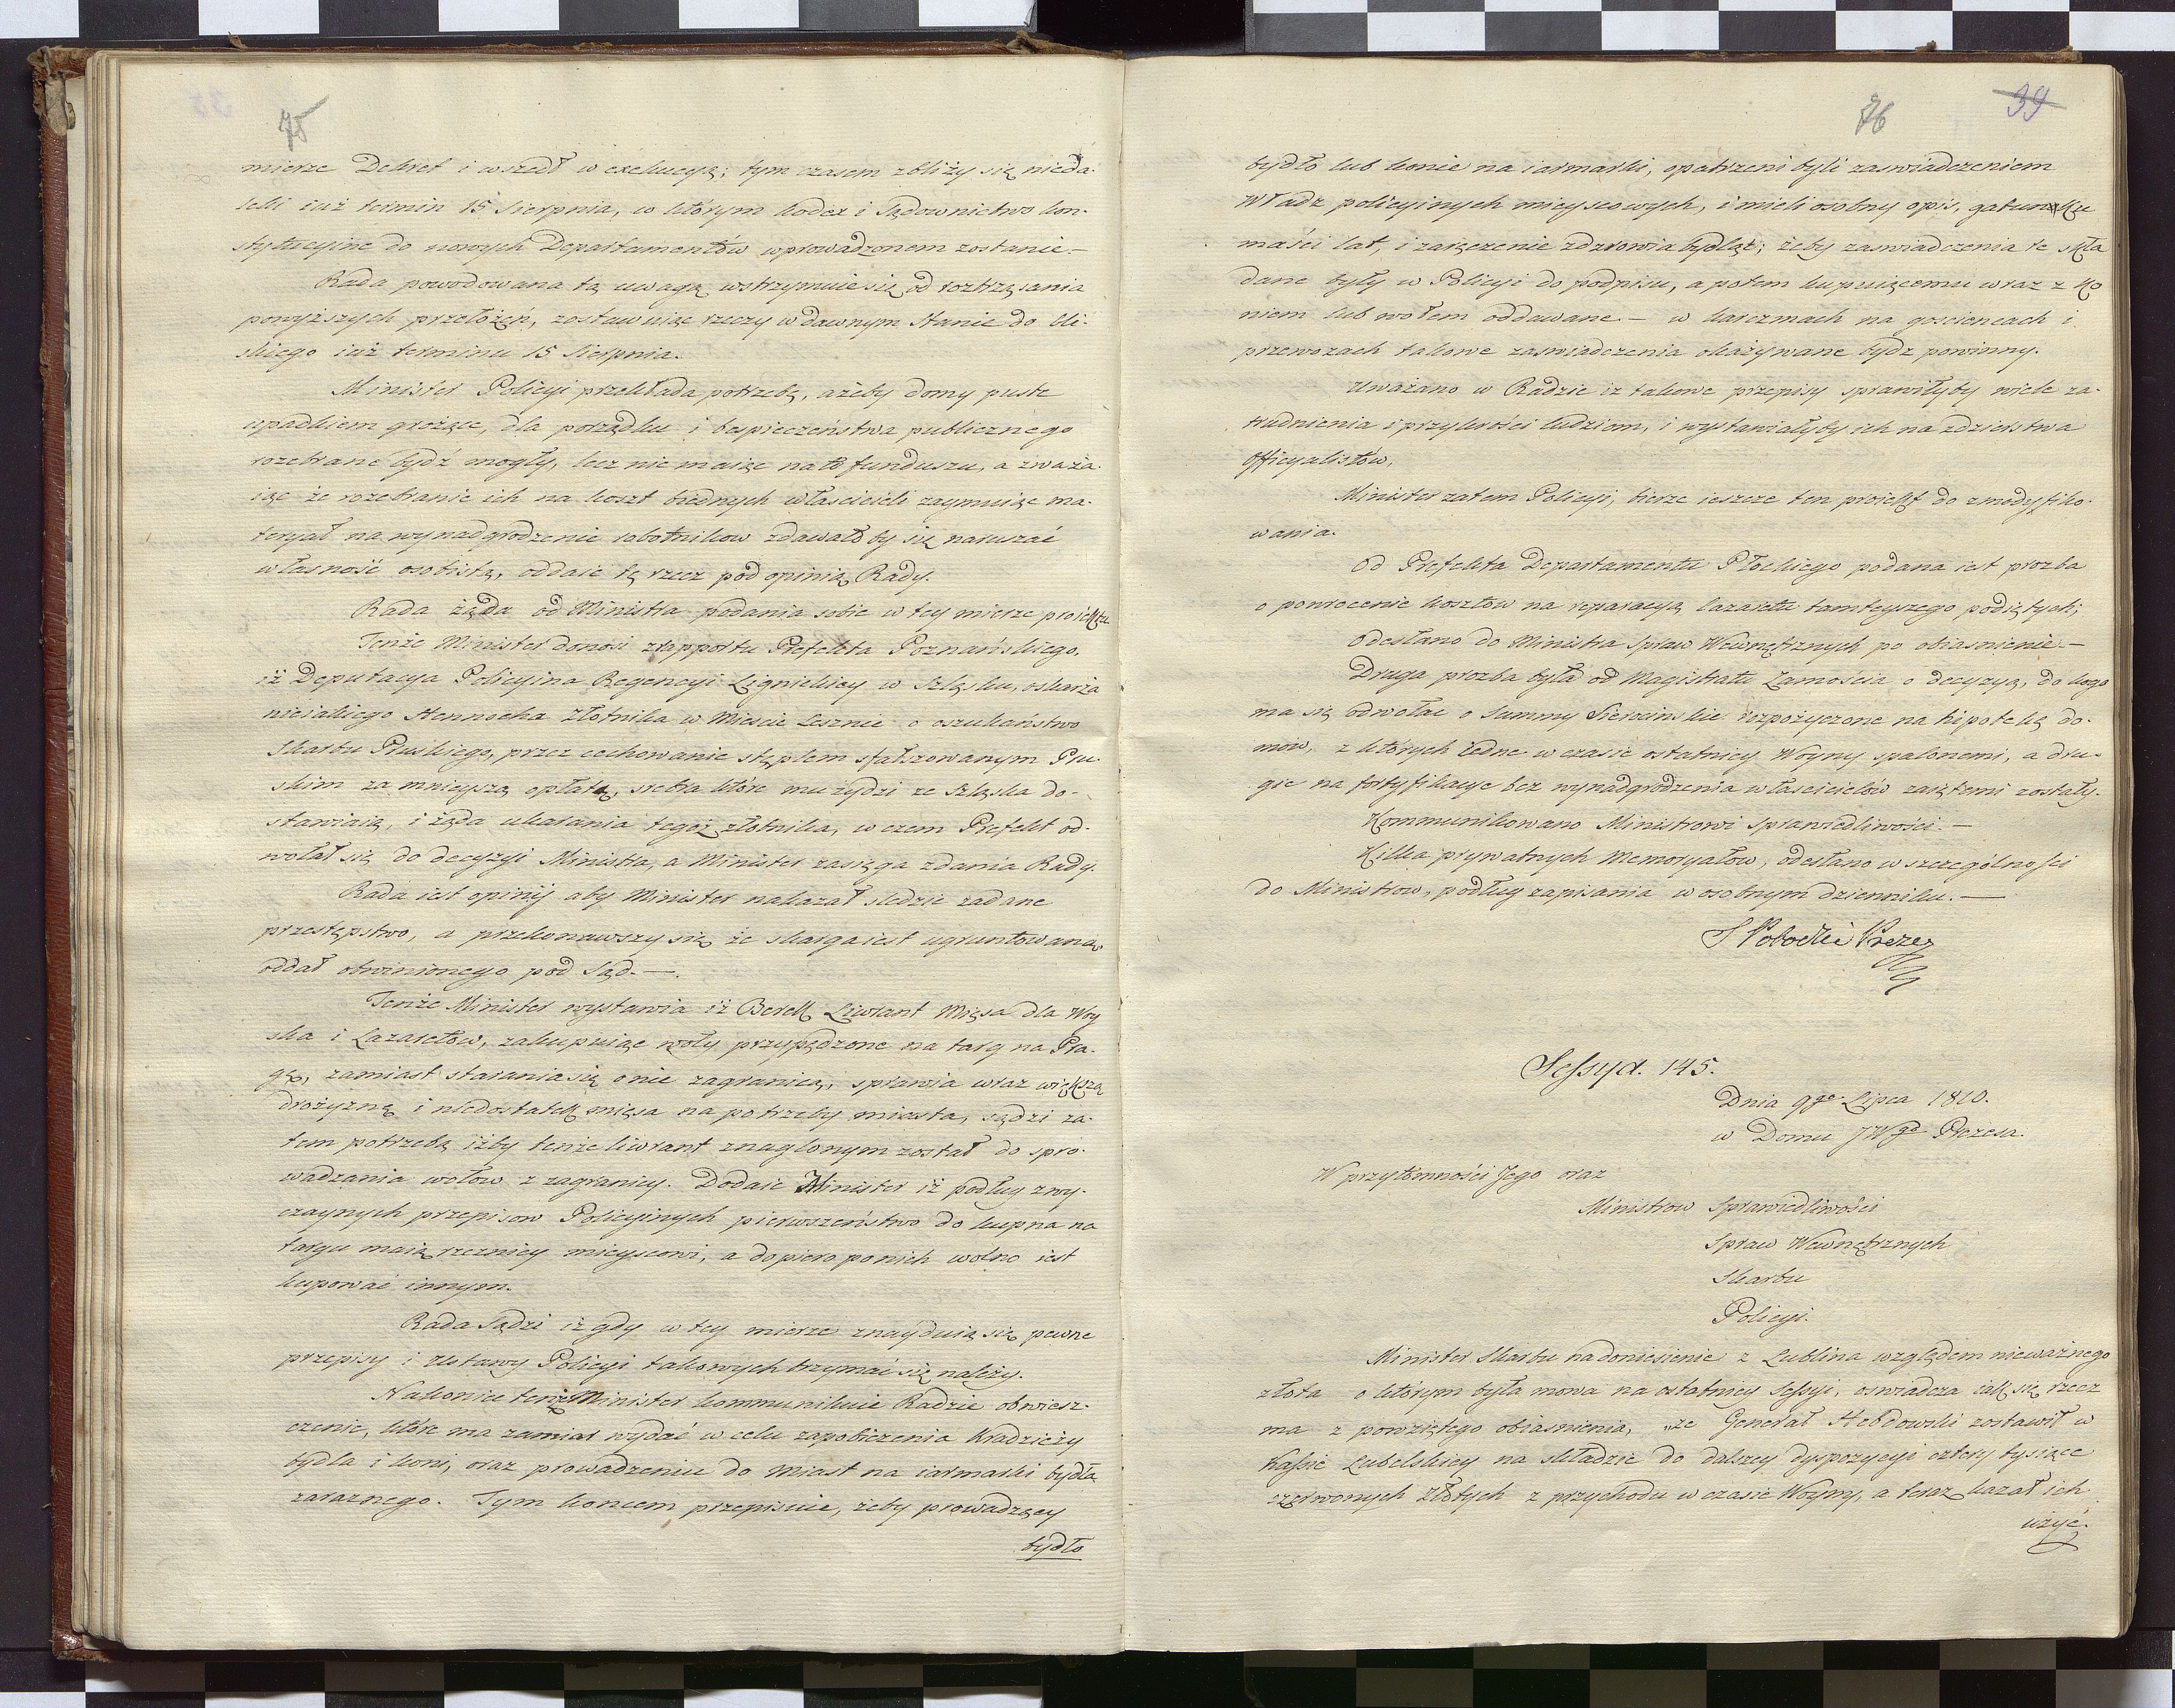 75
mierze Dekret i wszedł w exekucyą; tym czasem zbliży się nieda-
leki iuż termin 15 Sierpnia, w którym kodex i Sądownictwo kon-
stytucyine do nowych Departamentów wprowadzonem zostanie.-
Rada powodowana tą uwagą wstrzymuie się od roztrząsania
powyższych przełożeń, zostawuiąc rzeczy w dawnym stanie do bli-
skiego iuż terminu 15 Sierpnia.
Minister Policyi przekłada potrzebę, ażeby domy puste
upadkiem grożące, dla porządku i bespieczeństwa publicznego
rozebrane bydź mogły, lecz nie maiąc na to funduszu, a zważa-
iąc że rozebranie ich na koszt biednych właścicieli zaymuiąc ma-
teryał na wynadgrodzenie robotnikow zdawałoby się naruszać
własność osobistą, oddaie tę rzecz pod opinią Rady.
Rada żąda od Ministra podania sobie w tey mierze proiektu
Tenże Minister donosi z rapportu Prefekta Poznańskiego,
iż Deputacya Policyina Regencyi Lignickiey w Szląsku, oskarża
nieiakiego Hennocha złotnika w Mieście Lesznie o oszukaństwo
Skarbu Pruskiego, przez cechowanie stęplem sfałszowanym Pru-
skim za mnieyszą opłatą, srebra które mu żydzi ze Szląska do-
stawiaią, i żąda ukarania tegoż złotnika, w czem Prefekt od-
wołał się do decyzyi Ministra, a Minister zasięga zdania Rady.
Rada iest opinij aby Minister nakazał sledzić zadane
przestępstwo, a przekonawszy się że skarga iest ugruntowana,
oddał obwinionego pod Sąd.-
Tenże Minister wystawia iż Berek Liwrant Mięsa dla Woy
ska i Lazaretów, zakupuiąc woły przypędzone na targ na Pra-
gę, zamiast starania się o nie zagranicą, sprawia wraz większą
drożyznę i niedostatek mięsa na potrzeby miasta, sądzi za-
tem potrzebą iżby tenże liwrant znaglonym został do spro-
wadzania wołow z zagranicy. Dodaie Minister iż podług zwy-
czaynych przepisow Policyinych pierwszeństwo do kupna na
targu maią rzeznicy mieyscowi, a dopiero po nich wolno iest
kupować innym.
Rada Sądzi iż gdy w tey mierze znayduią się pewne
przepisy i Ustawy Policyi takowych trzymać się należy.
Nakoniec tenże Minister kommunikuie Radzie obwiesz-
czenie, które ma zamiar wydać w celu zapobieżenia Kradzieży
bydła i koni, oraz prowadzeniu do Miast na iarmarki bydła
zaraznego. Tym koncem przepisuie, żeby prowadzący
bydło
76
39
bydło lub konie na iarmarki, opatrzeni byli zaswiadczeniem
Władz policyinych mieyscowych, i mieli osobny opis, gatunku
maści lat, i zaręczenie zdrowia bydląt; żeby zaswiadczenia te skła
dane były w Policyi do podpisu, a potem kupuiącemu wraz z ko
niem lub wołem oddawane.- w karczmach na goscieńcach i
przewozach takowe zaswiadczenia okazywane bydz powinny.
Uważano w Radzie iz takowe przepisy sprawiłyby wiele za-
trudnienia i przykrości ludziom, i wystawiałyby ich na zdzierstwa
Officyalistów,
Minister zatem Policyi, bierze ieszcze ten proiekt do zmodyfiko-
wania.
Od Prefekta Departamentu Płockiego podana iest prozba
o powrocenie kosztow na reparacyą lazaretu tamteyszego podiętych;
Odesłano do Ministra Spraw Wewnętrznych po obiasnienie.-
Druga prozba była od Magistratu Zamościa o decyzyą, do kogo
ma się odwołać o Summy Sierocinskie rozpożyczone na hipotekę do-
mów, z których iedne w czasie ostatniey Woyny spalonemi, a dru-
gie na fortyfikacye bez wynadgrodzenia właścicielów zaiętemi zostały.
Kommunikowano Ministrowi Sprawiedliwości.-
Kilka prywatnych Memoryałow, odesłano w szczególności
do Ministrow, podług zapisania w osobnym dzienniku.-
S Potocki Prezes
Sessya. 145.
Dnia 9go Lipca 1810.
w Domu JWgo Prezesa.
W przytomności Jego oraz
Ministrow Sprawiedliwości
Spraw Wewnętrznych
Skarbu
Policyi.
Minister Skarbu na doniesienie z Lublina względem nieważnego
złota o którym była mowa na ostatniey Sessyi, oswiadcza iak się rzecz
ma z powziętego obiasnienia, „że Generał Hebdowski zostawił w
Kassie Lubelskiey na składzie do dalszey dyspozycyi cztery tysiące
czerwonych Złotych z przychodu w czasie Woyny, a teraz kazał ich
użyć.